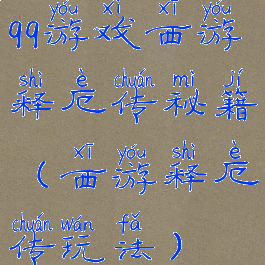 yóu xì xī yóu
99游戏西游
shì è chuán mì jí
释厄传秘籍
xī yóu shì è
（西游释厄
chuán wán fǎ
传玩法）